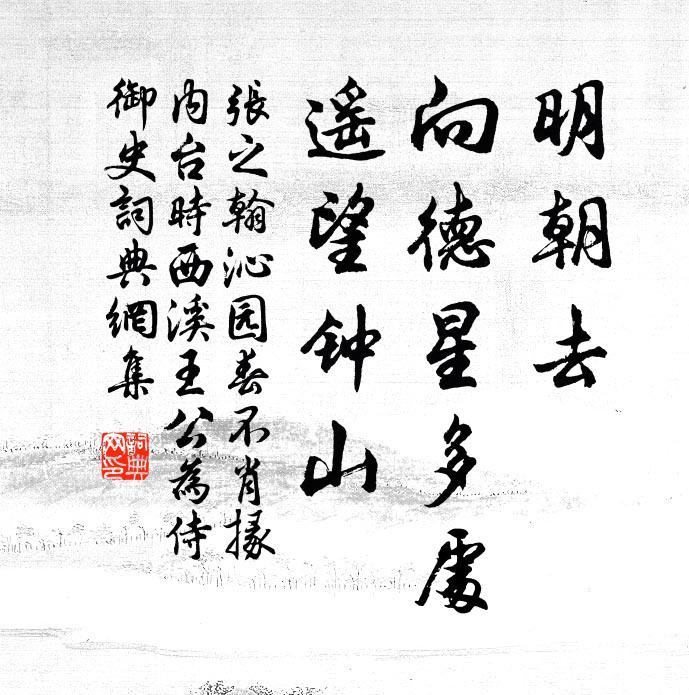 明朝去
向德星多處
遥望钟山
張之翰沁园春不肖掾
内台時西溪王公為侍
御史詞典網集
詞典网印